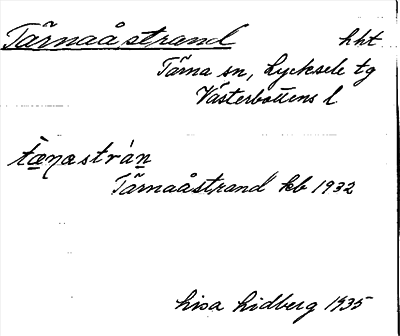 Tärnaåstrand hht
Tärna sn, Lycksele tg
Västerbottens l
tæ̀ṇastràn
Tärnaåstrand kb 1932
Lisa Lidberg 1935